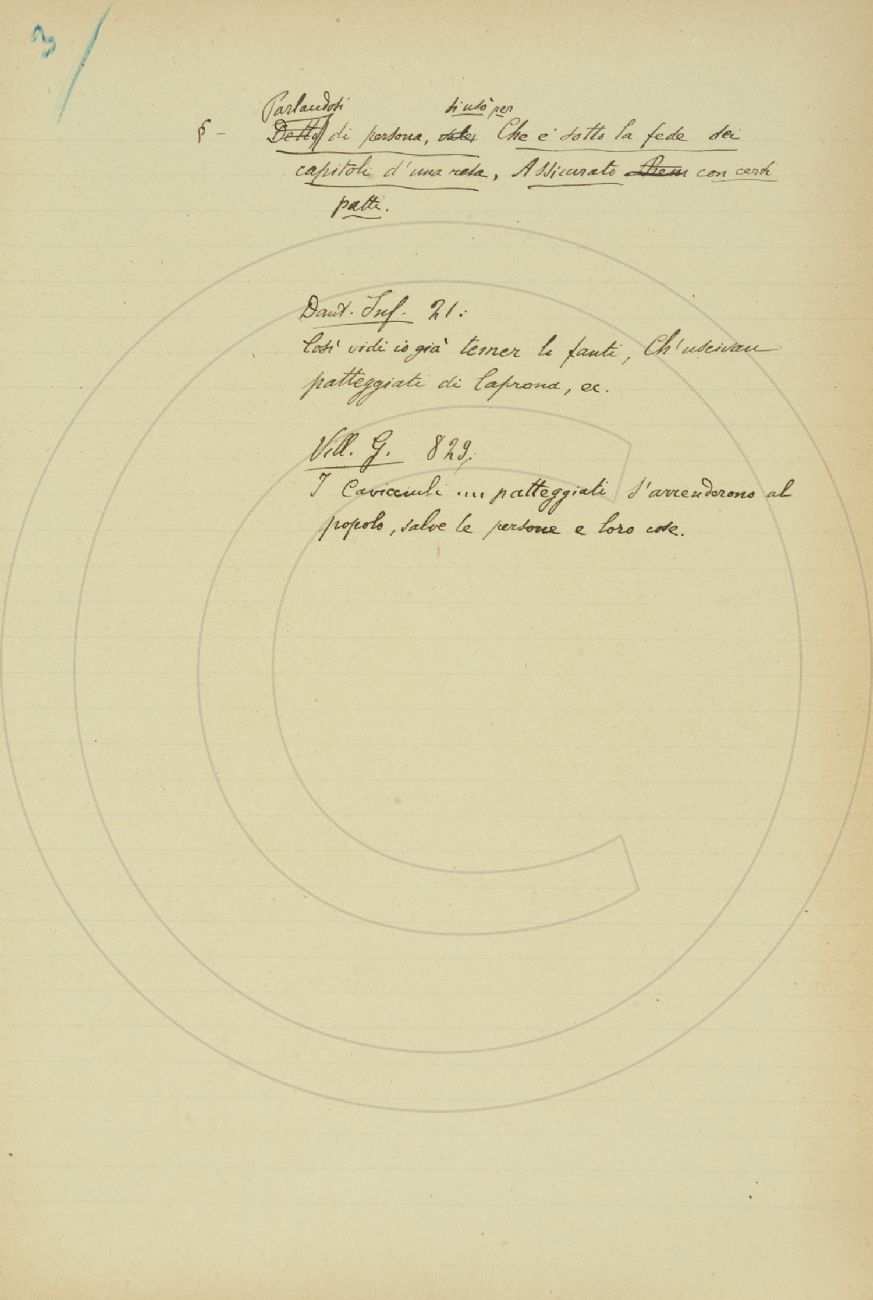 3
Parlandosi si usò per
§ - Detto di persona, vale: Che è sotto la fede dei
capitoli d'una resa, Assicurato con certi
patti.
Dant. Inf. 21:
Così vidi io già temer li fanti, Ch'uscivan
patteggiati di Caprona, ec.
Vill. G. 829:
I Cavicciuli .... patteggiati s'arrenderono al
popolo, salve le persone e loro cose.